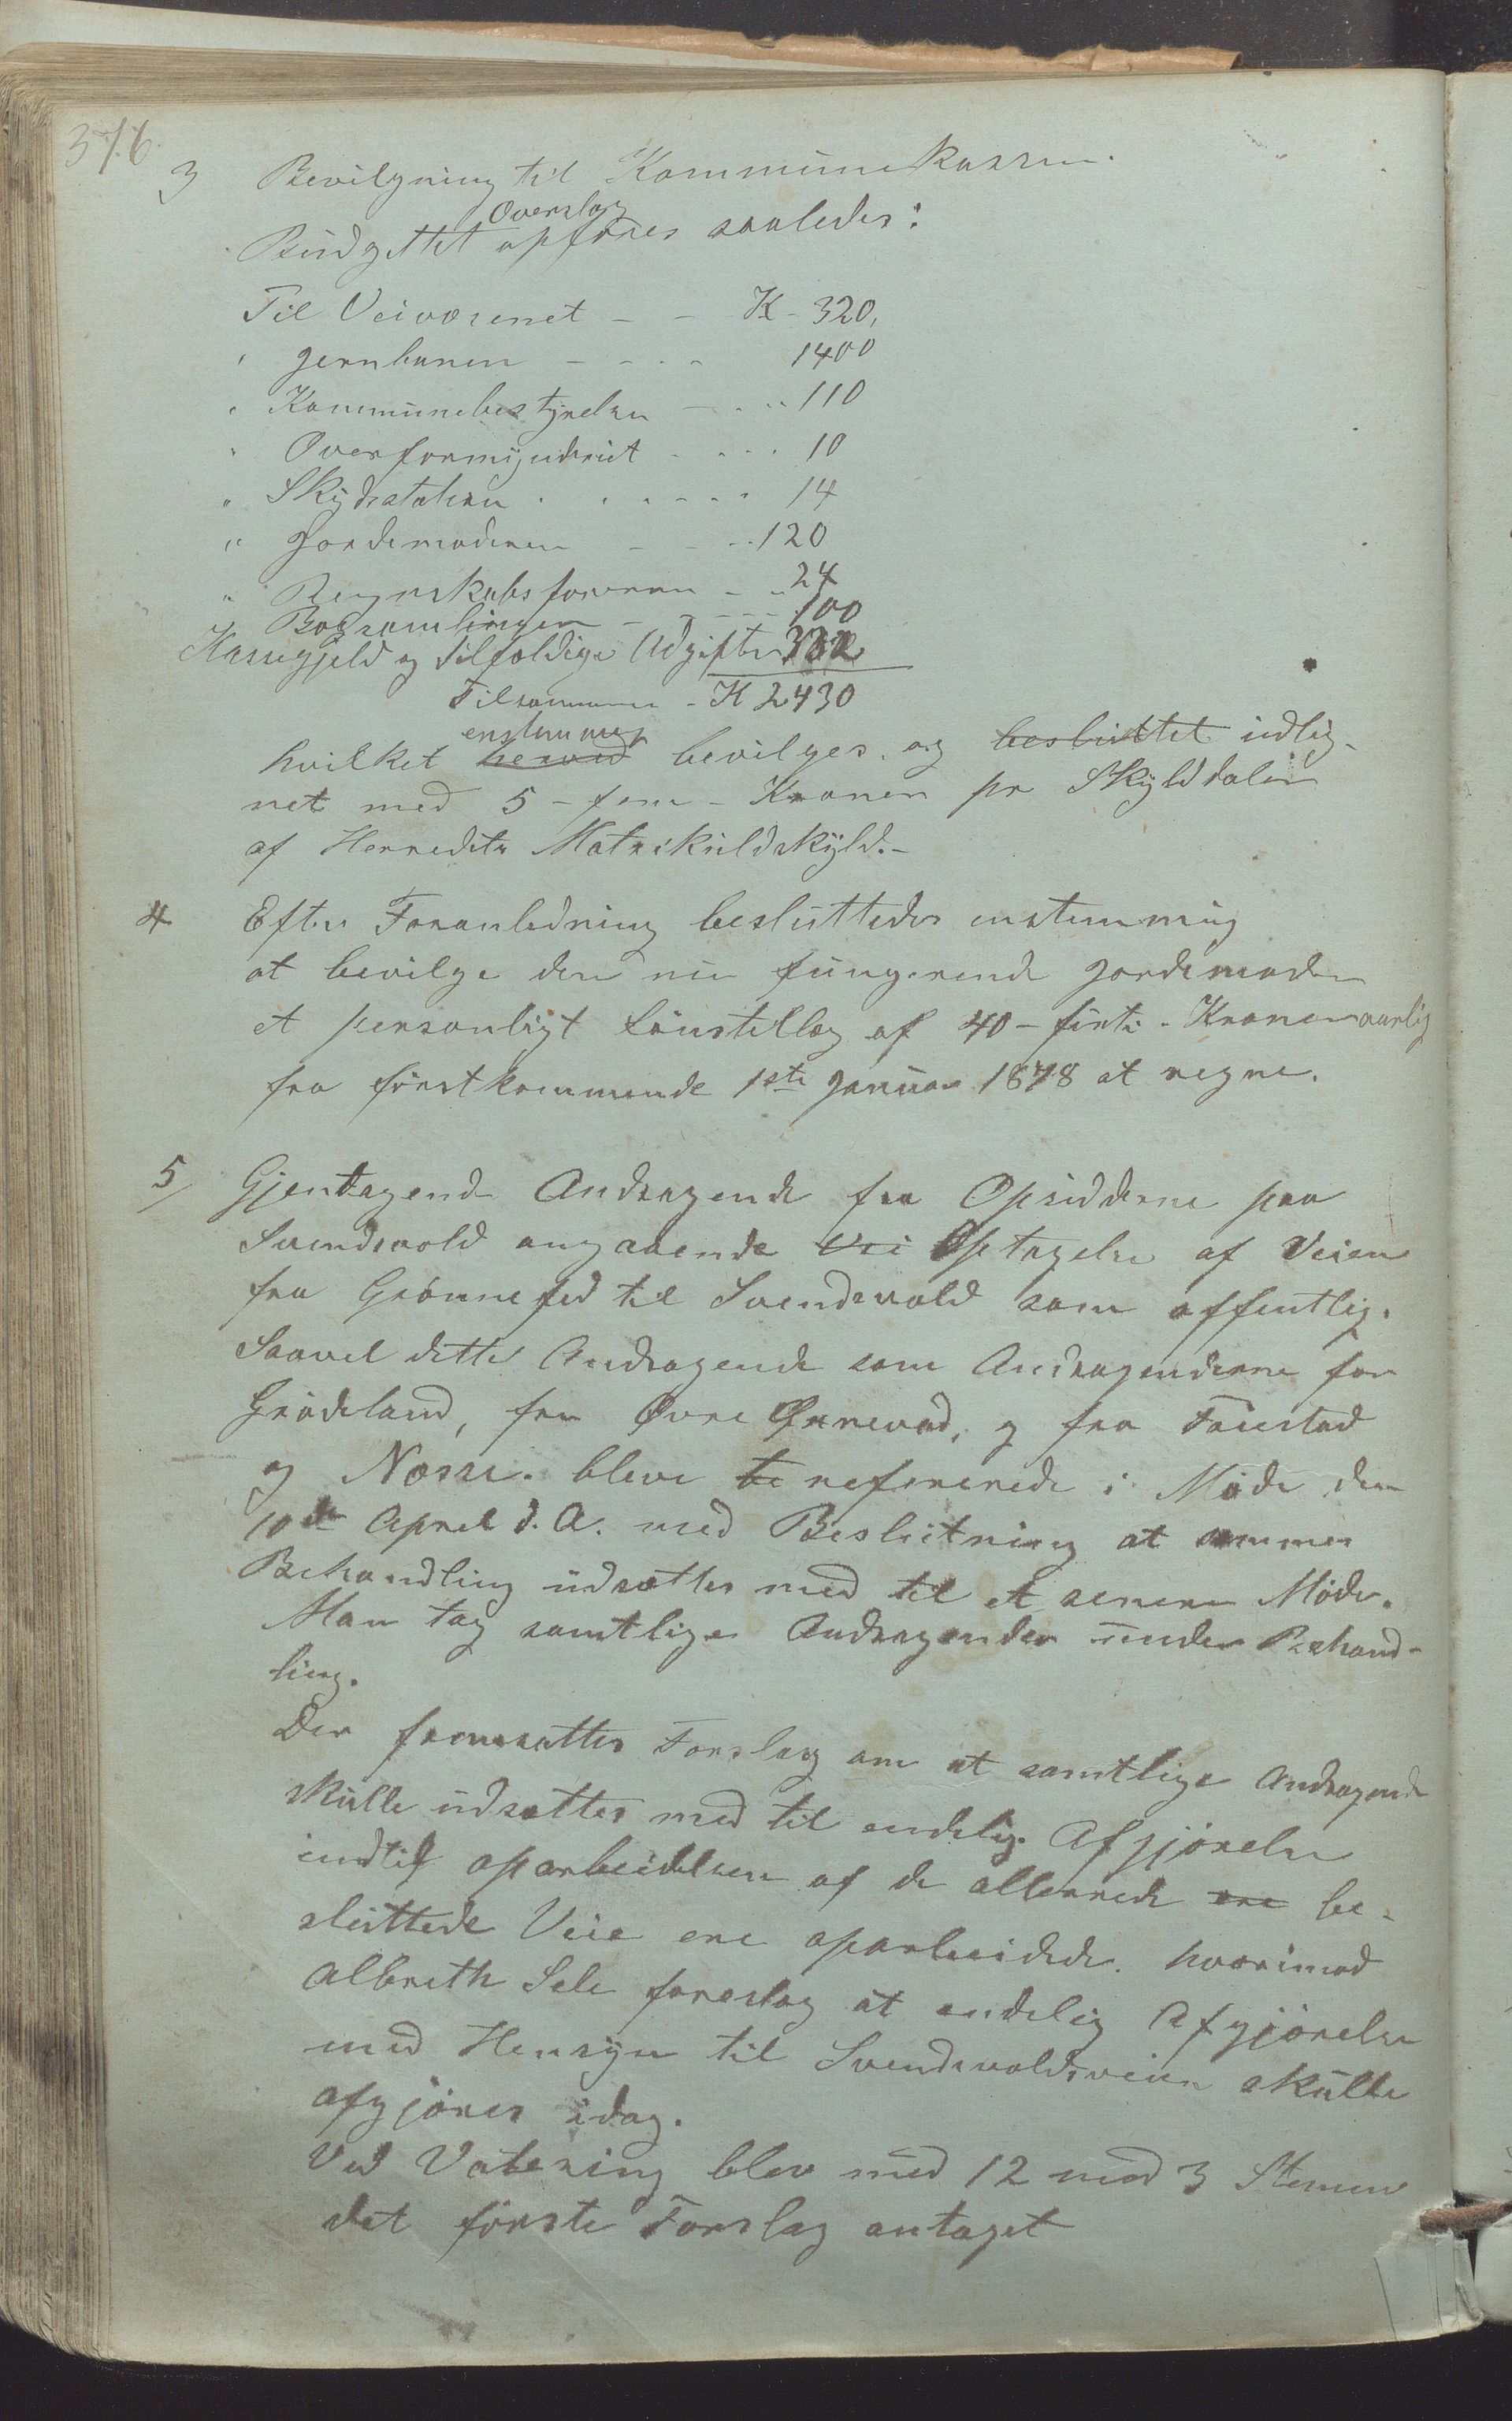 376.
3 Bevilgning til Kommunekassen.
Overslag
Budgettet opføres saaledes:
Til Veivæsenet - - K - 320,
" Jernbanen - - - - 1400
" Kommunebestyrelsen - - - 110
" Overformynderiet - - - - 10
" Skydsstatien - - - - - 14
" Jordemoderen - - - 120
" Regnskabsføreren - - 24
Bogsamlingen - - - - 100
Kassegjeld og tilfældige Udgifter 332
Tilsammen - K 2430
enstemmig
hvilket herved bevilges og besluttet udlig-
net med 5 - fem - Kroner pr Skylddaler
af Herredets Matrikulskyld.-
4 Efter Foranledning besluttedes enstemmig
at bevilge den nu fungerende Jordemoder
et personligt Lønstillæg af 40 - firti - Kroner aarlig
fra førstkommende 1ste Januar 1878 at regne.
5/ Gjentagende Andragende fra Opsidderne paa
Svendsvold angaaende Vei Optagelse af Veien
fra Grønnefed til Svendsvold som offentlig.
Saavel dette Andragende som Andragenderne for
Grødeland, fra Øvre Ørnevad, og fra Tøiestad
og Næsse. bleve be refererede i Møde den
10de April d. A. med Beslutning at sammes
Behandling udsættes med til et senere Møde.
Man tog samtlige Andragender under Behand-
ling.
Der fremsattes Forslag om at samtlige Andragende
skulle udsættes med til endelig Afgjørelse
indtil oparbeidelsen af de allerrede ere be-
sluttede Veie ere oparbeidede. hvorimod
Albreth Sele foreslog at endelig Afgjørelse
med Hensyn til Svendsvoldsveien skulle
afgjøres idag.
Ved Votering blev med 12 mod 3 Stemmer
det første Forslag antaget